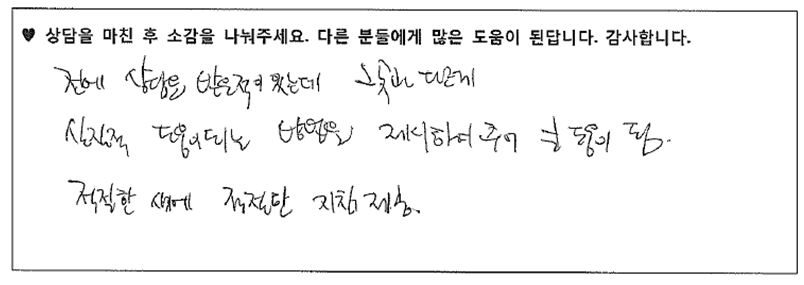 ♥ 상담을 마친 후 소감을 나눠주세요. 다른 분들에게 많은 도움이 된답니다. 감사합니다.
전에 상담을 받은적이 있는데 그곳과 다르게
실질적 도움이되는 방법을 제시하여 주어 큰 도움이 됨.
적절한 때에 적절한 지침 제공.